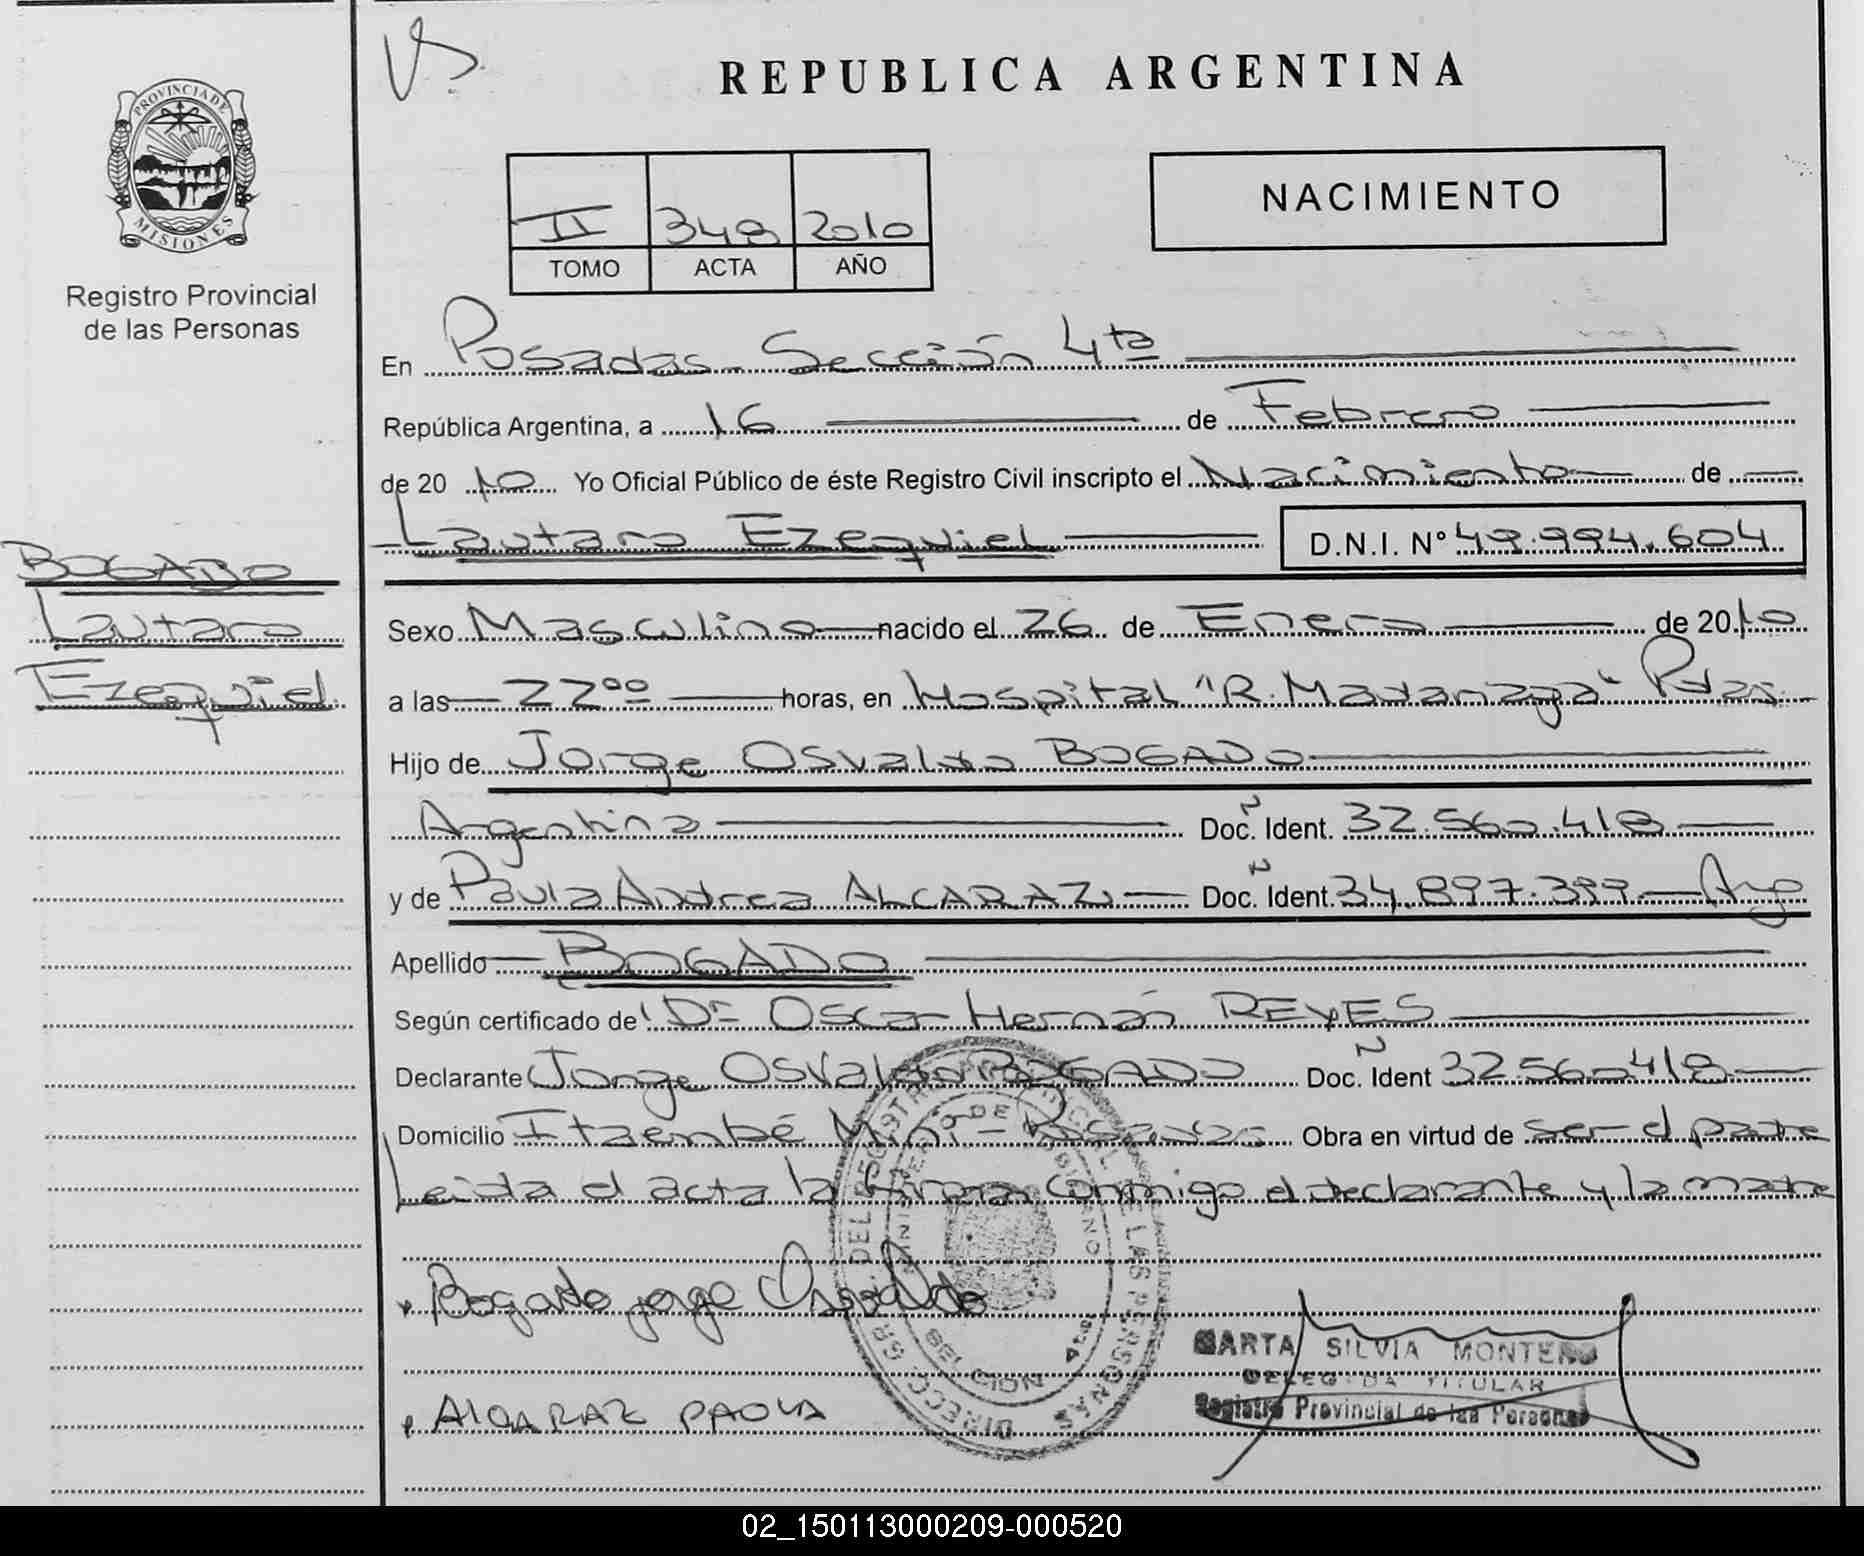 PROVINCIA DE
MISIONES
Registro Provincial
de las Personas
BOGADO
Lautaro
Ezequiel
REPUBLICA ARGENTINA
II 348 2010
TOMO ACTA AÑO
NACIMIENTO
En Posadas Sección 4ta
República Argentina, a 16 de Febrero
de 20 10 Yo Oficial Público de éste Registro Civil inscripto el Nacimiento de
Lautaro Ezequiel D.N.I. N° 49.994.604
Sexo Masculino nacido el 26 de Enero de 20 10
a las 22 00 horas, en Hospital "R. Madariaga" Pdas.
Hijo de Jorge Osvaldo BOGADO
Argentina Doc. Ident. 32.560.418
y de Paula Andrea ALCARAZ Doc. Ident. 34.897.399 Arg
Apellido BOGADO
Según certificado de Dr Oscar Hernán REYES
Declarante Jorge Osvaldo BOGADO Doc. Ident 32.560.418
Domicilio Itaembé Miní Posadas Obra en virtud de ser el padre
Leida el acta la firma conmigo el declarante y la madre
Bogado jorge Osvaldo
ALCARAZ PAOLA
MARTA SILVIA MONTERO
DELEGADA TITULAR
Registro Provincial de las Personas
02_150113000209-000520